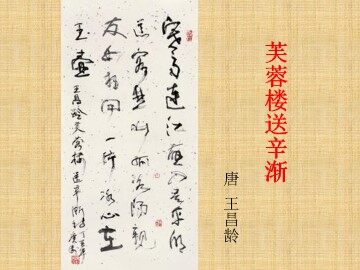 芙蓉楼送辛渐
唐 王昌龄
寒雨連江夜入吳平明
送客楚山孤洛陽親
友如相問一片冰心在
玉壺
王昌齡芙蓉樓送辛漸